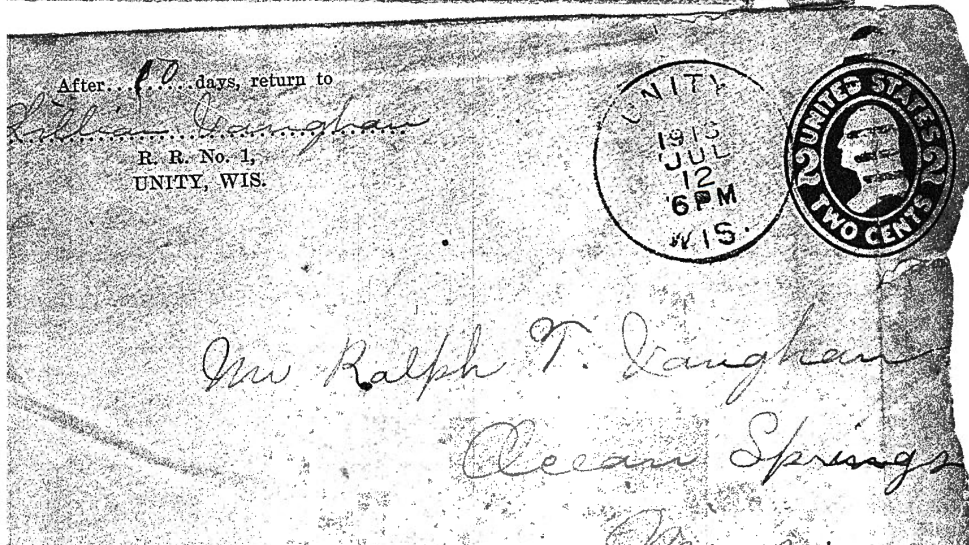 After..10.....days, return to
Lillian Vaughan
R. R. No. 1,
UNITY, WIS.
UNITY
JUL
12
6PM
WIS.
UNITED STATES
2 2
TWO CENTS
Mr Ralph T. Vaughan
Ocean Springs